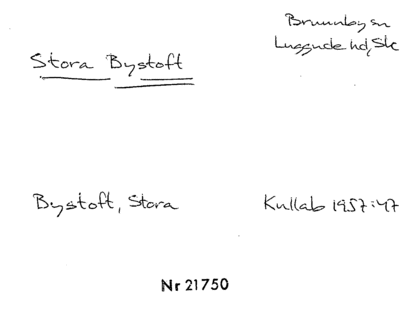 Brunnby sn
Luggude hd, Sk
Stora Bystoft
Bystoft, Stora
Kullab 1957:47
Nr 21750